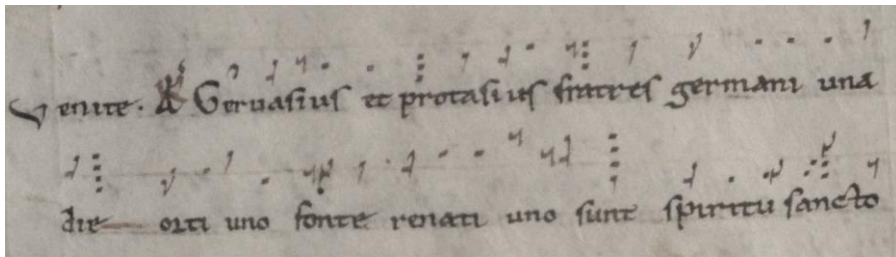 Venite. A Geruasius et protasius fratres germani una
die orti uno fonte renati uno sunt spiritu sancto